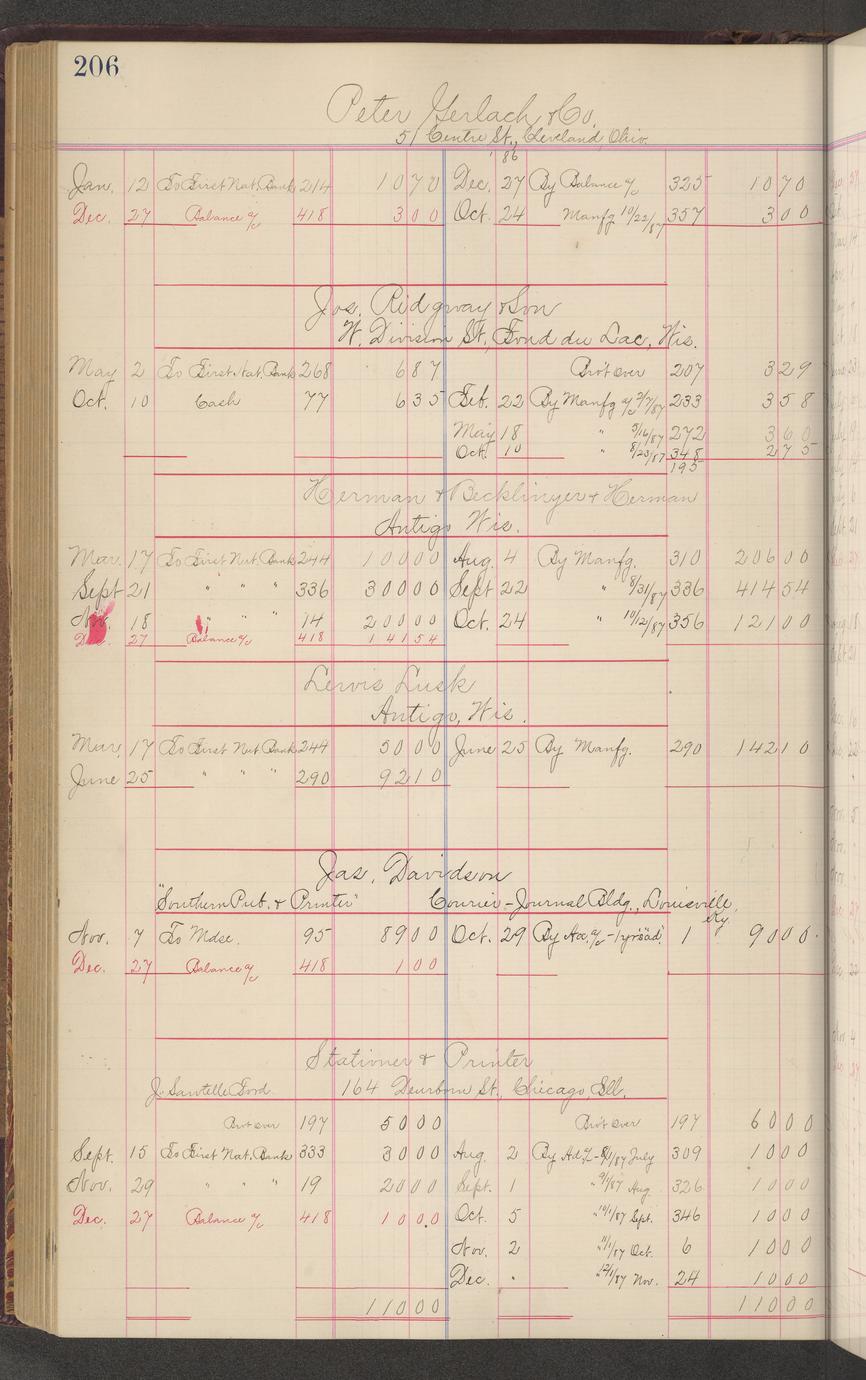 206
Peter Gerlach & Co.
51 Centre St., Cleveland Ohio.
'86
Jan. 12 To First Nat. Bank 214 10 70 Dec. 27 By Balance a/c 325 10 70
Dec. 27 Balance a/c 418 3 00 Oct. 24 Manfg 10/22/87 357 3 00
Jos. Ridgway & Son
W. Division St., Fond du Lac, Wis.
May 2 To First Nat. Bank 268 6 87 Bro't over 207 3 29
Oct. 10 Cash 77 6 35 Feb. 22 By Manfg a/c 2/7/87 233 3 58
May 18 " 5/16/87 272 3 60
Oct. 10 " 8/23/87 348 2 75
195
Herman & Becklinger & Herman
Antigo Wis.
Mar. 17 To First Nat. Bank 244 100 00 Aug. 4 By Manfg. 310 206 00
Sept 21 " " " 336 300 00 Sept 22 " 8/31/87 336 414 54
Nov. 18 " " " 14 200 00 Oct. 24 " 10/12/87 356 121 00
Dec. 27 Balance a/c 418 141 54
Lewis Lusk
Antigo, Wis.
Mar. 17 To First Nat. Bank 244 50 00 June 25 By Manfg. 290 142 10
June 25 " " " 290 92 10
Jas. Davidson
"Southern Pub. & Printer" Courier-Journal Bldg., Louisville, Ky.
Nov. 7 To Mdse. 95 89 00 Oct. 29 By Adv. a/c - 1 yr's ad. 1 90 00
Dec. 27 Balance a/c 418 1 00
Stationer & Printer
J. Sawtelle Ford 164 Dearborn St., Chicago Ill.
Bro't over 197 50 00 Bro't over 197 60 00
Sept. 15 To First Nat. Bank 333 30 00 Aug. 2 By Ad a/c - 8/1/87 July 309 10 00
Nov. 29 " " " 19 20 00 Sept. 1 " 9/1/87 Aug. 326 10 00
Dec. 27 Balance a/c 418 10 00 Oct. 5 " 10/1/87 Sept. 346 10 00
Nov. 2 " 11/1/87 Oct. 6 10 00
Dec. " " 12/1/87 Nov. 24 10 00
110 00 110 00